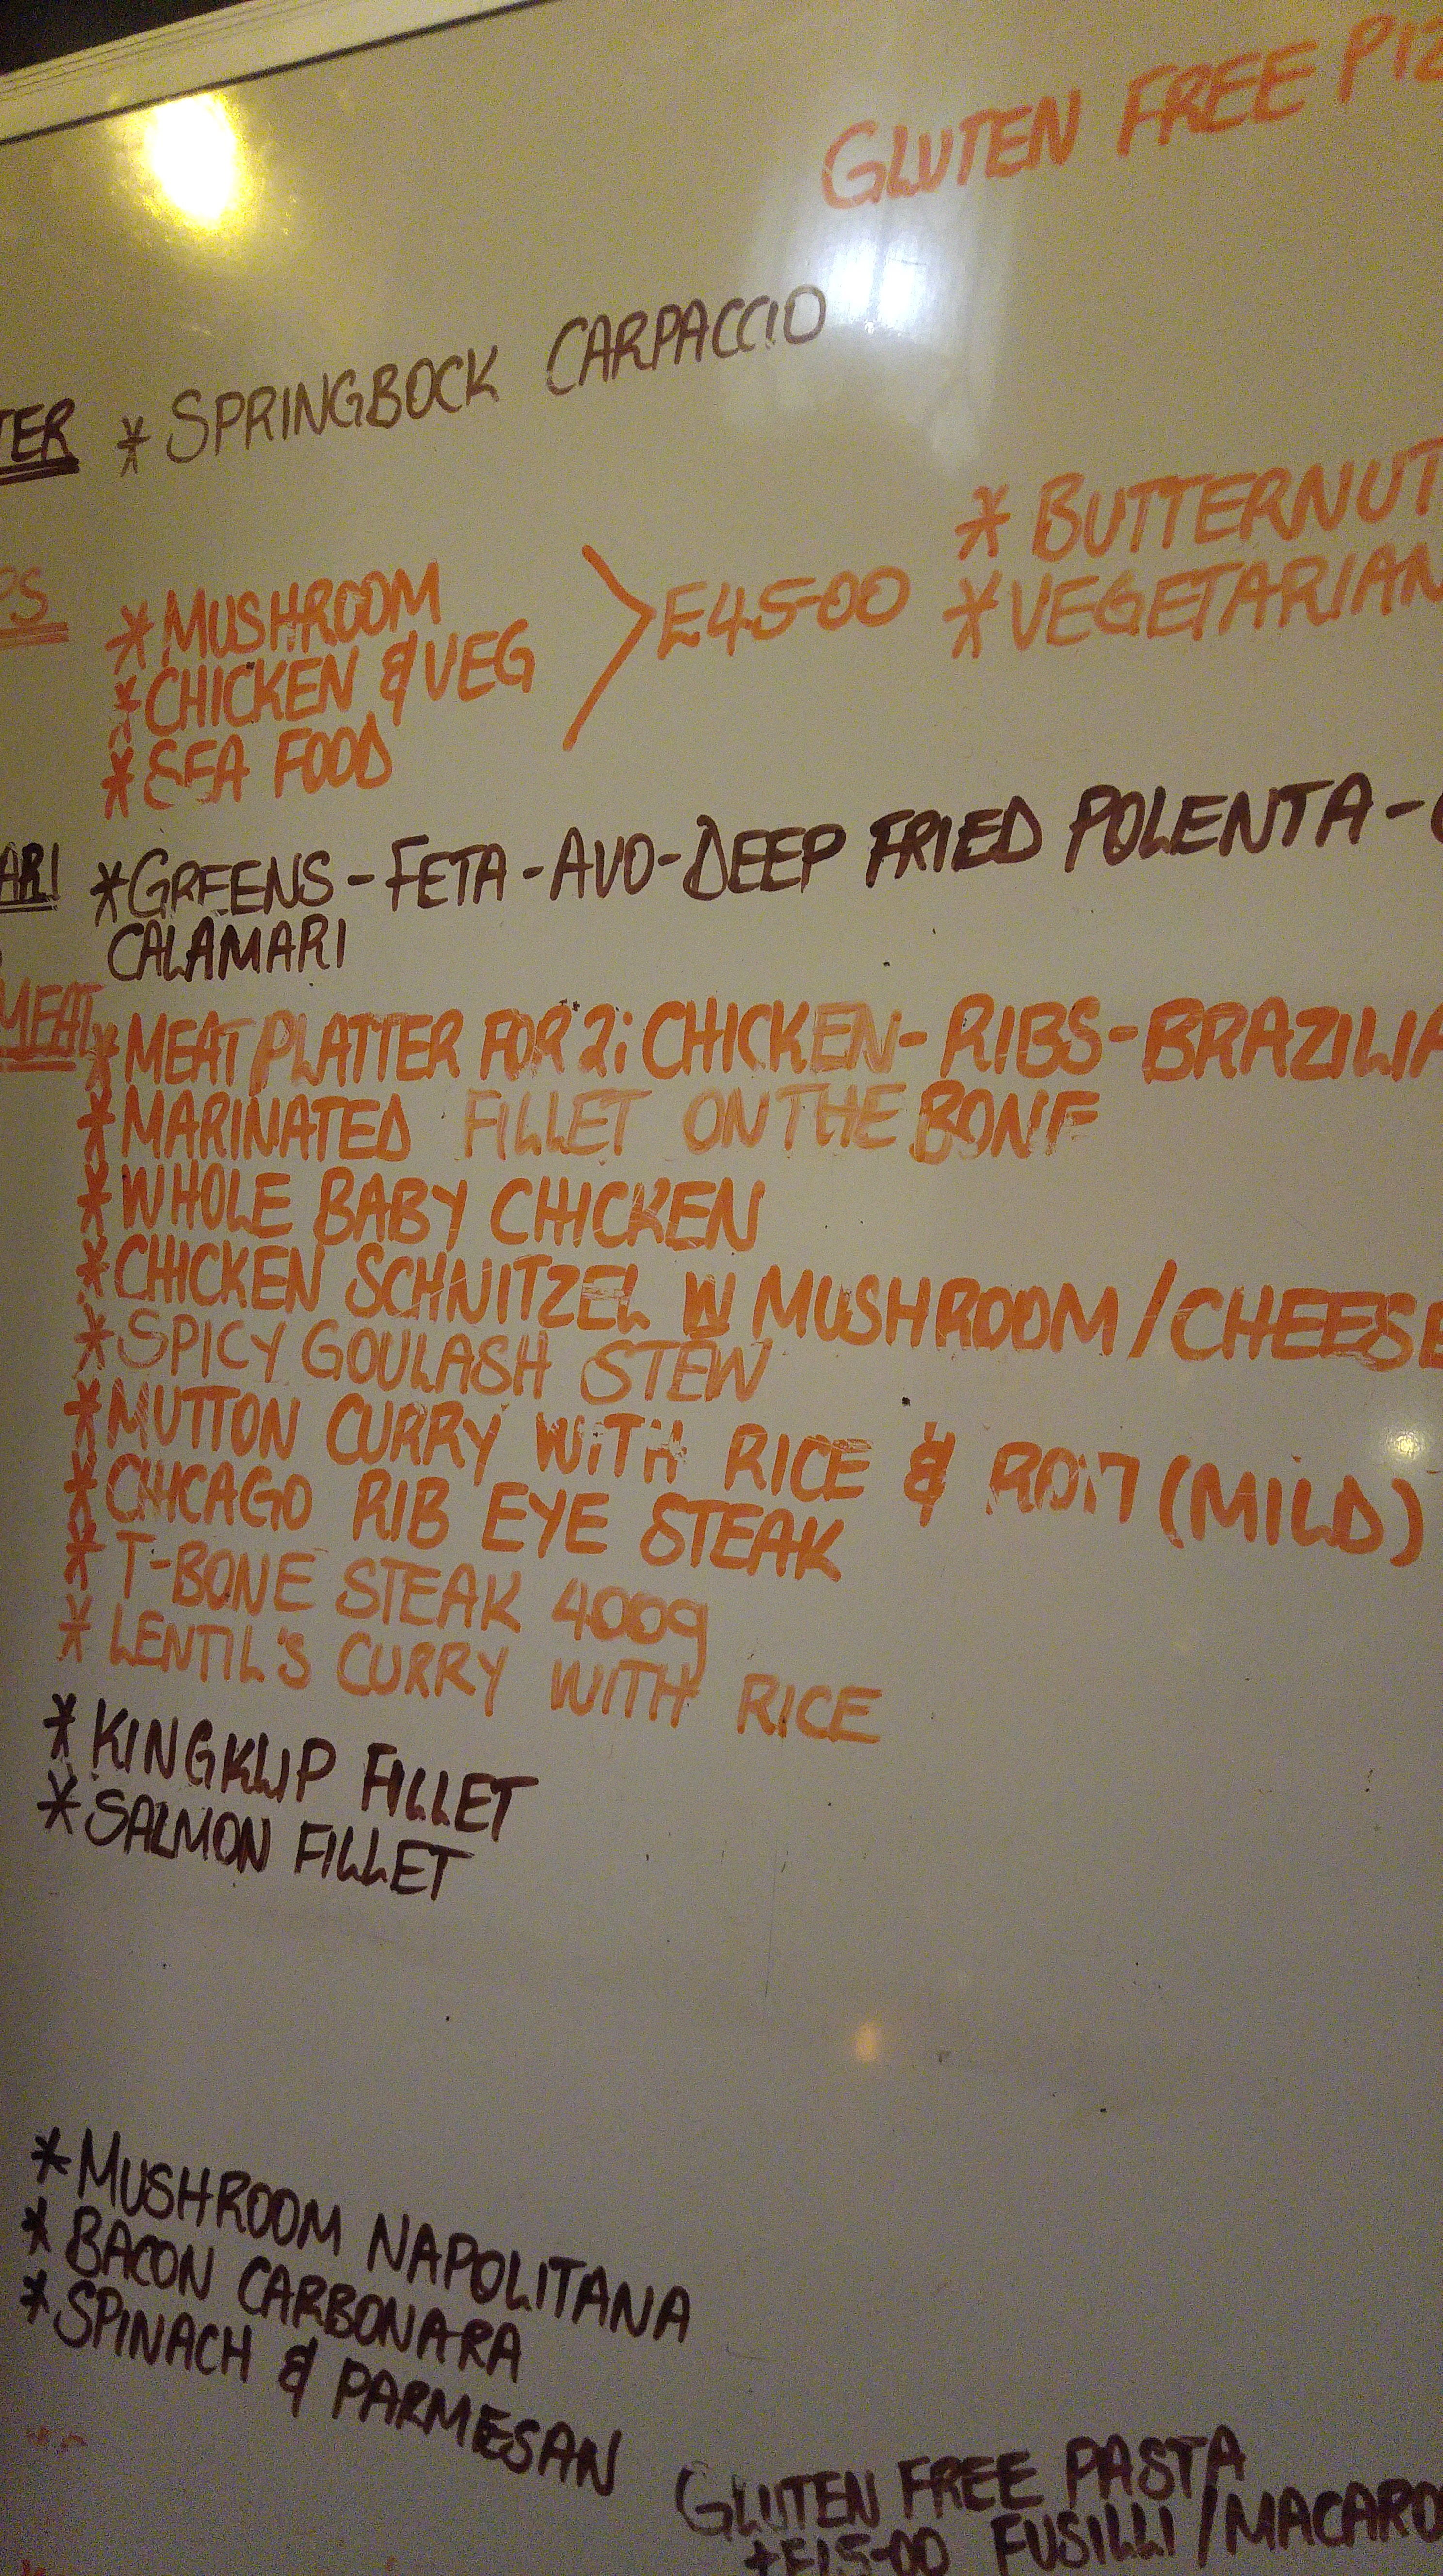 GLUTEN FREE PIZ
TER * SPRINGBOCK CARPACCIO
PS * MUSHROOM
* CHICKEN & VEG
* SEA FOOD
E45-00
* BUTTERNUT
* VEGETARIAN
ARI * GREENS - FETA - AVO - DEEP FRIED POLENTA -
CALAMARI
MEAT * MEAT PLATTER FOR 2: CHICKEN - RIBS - BRAZILIA
* MARINATED FILLET ON THE BONE
* WHOLE BABY CHICKEN
* CHICKEN SCHNITZEL W MUSHROOM / CHEESE
* SPICY GOULASH STEW
* MUTTON CURRY WITH RICE & ROTI (MILD)
* CHICAGO RIB EYE STEAK
* T-BONE STEAK 400g
* LENTIL'S CURRY WITH RICE
* KINGKLIP FILLET
* SALMON FILLET
* MUSHROOM NAPOLITANA
* BACON CARBONARA
* SPINACH & PARMESAN
GLUTEN FREE PASTA
+E15-00 FUSILLI / MACARO